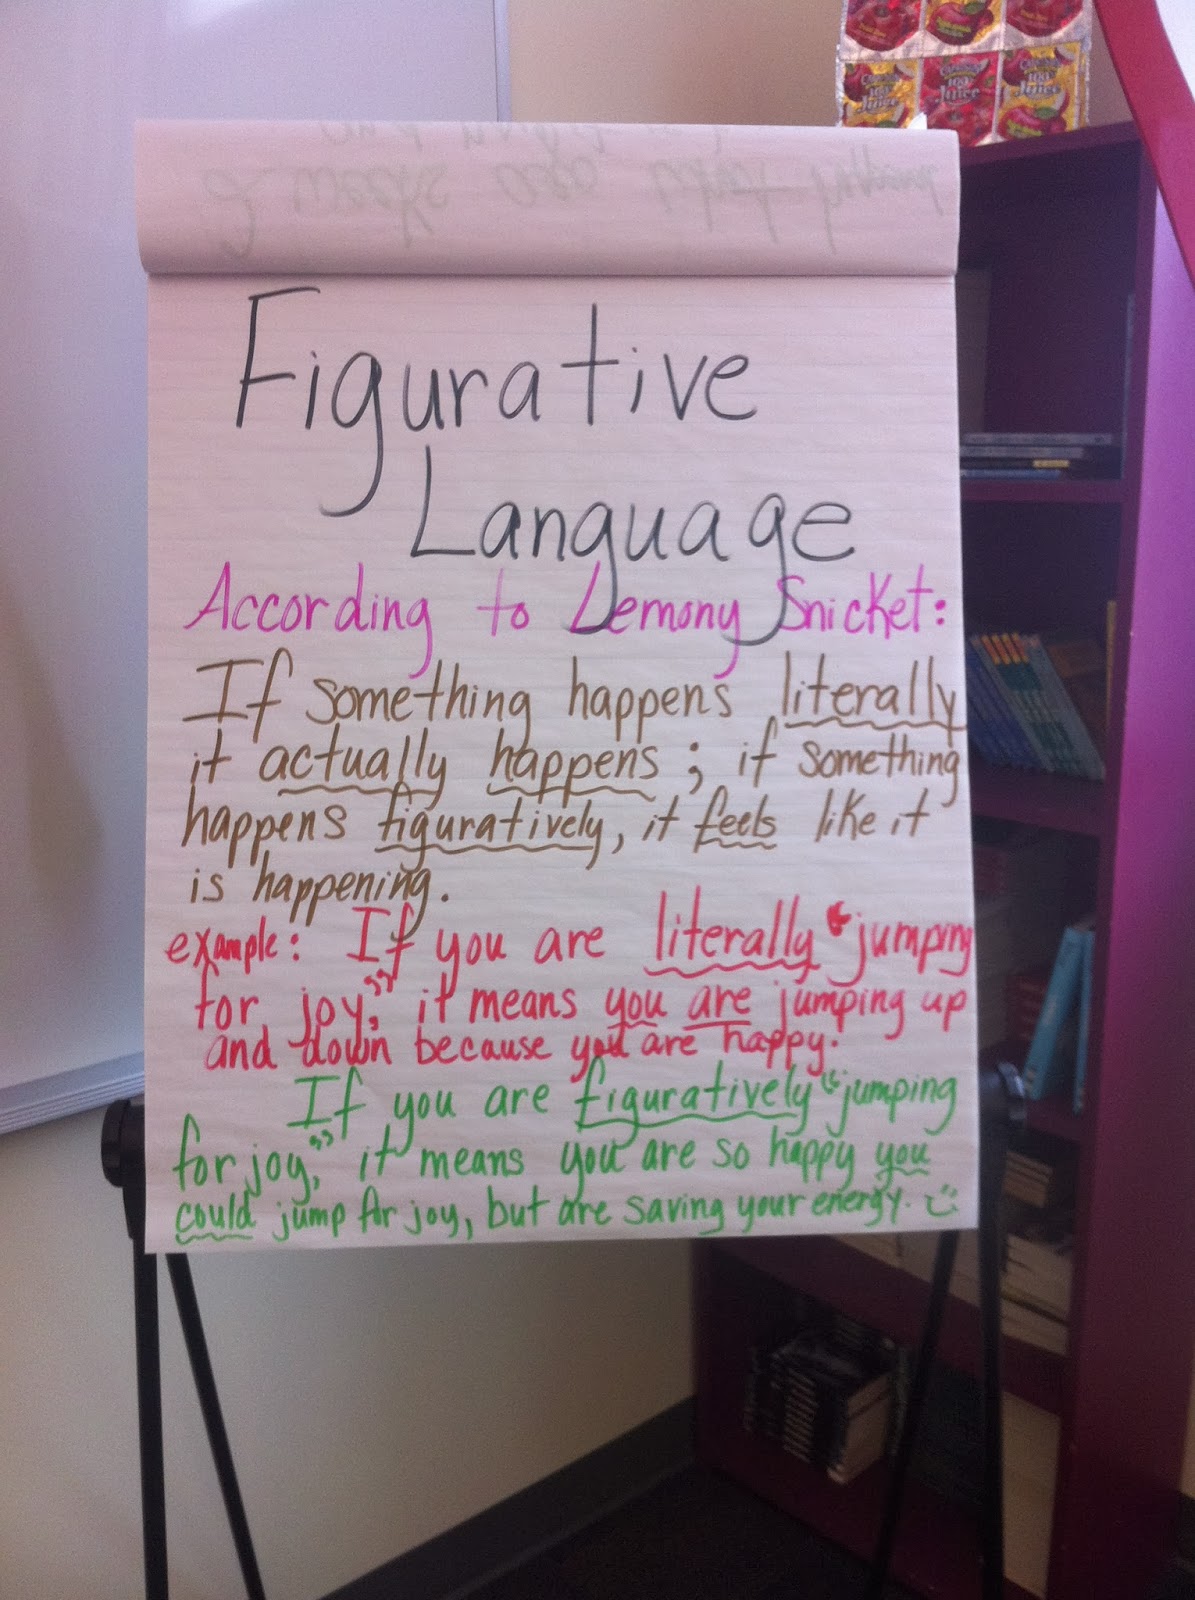 100% Juice
100% Juice
100% Juice
Figurative
Language
According to Lemony Snicket:
If something happens literally
it actually happens; if something
happens figuratively, it feels like it
is happening.
example: If you are literally "jumping
for joy," it means you are jumping up
and down because you are happy.
If you are figuratively "jumping
for joy," it means you are so happy you
could jump for joy, but are saving your energy. :)